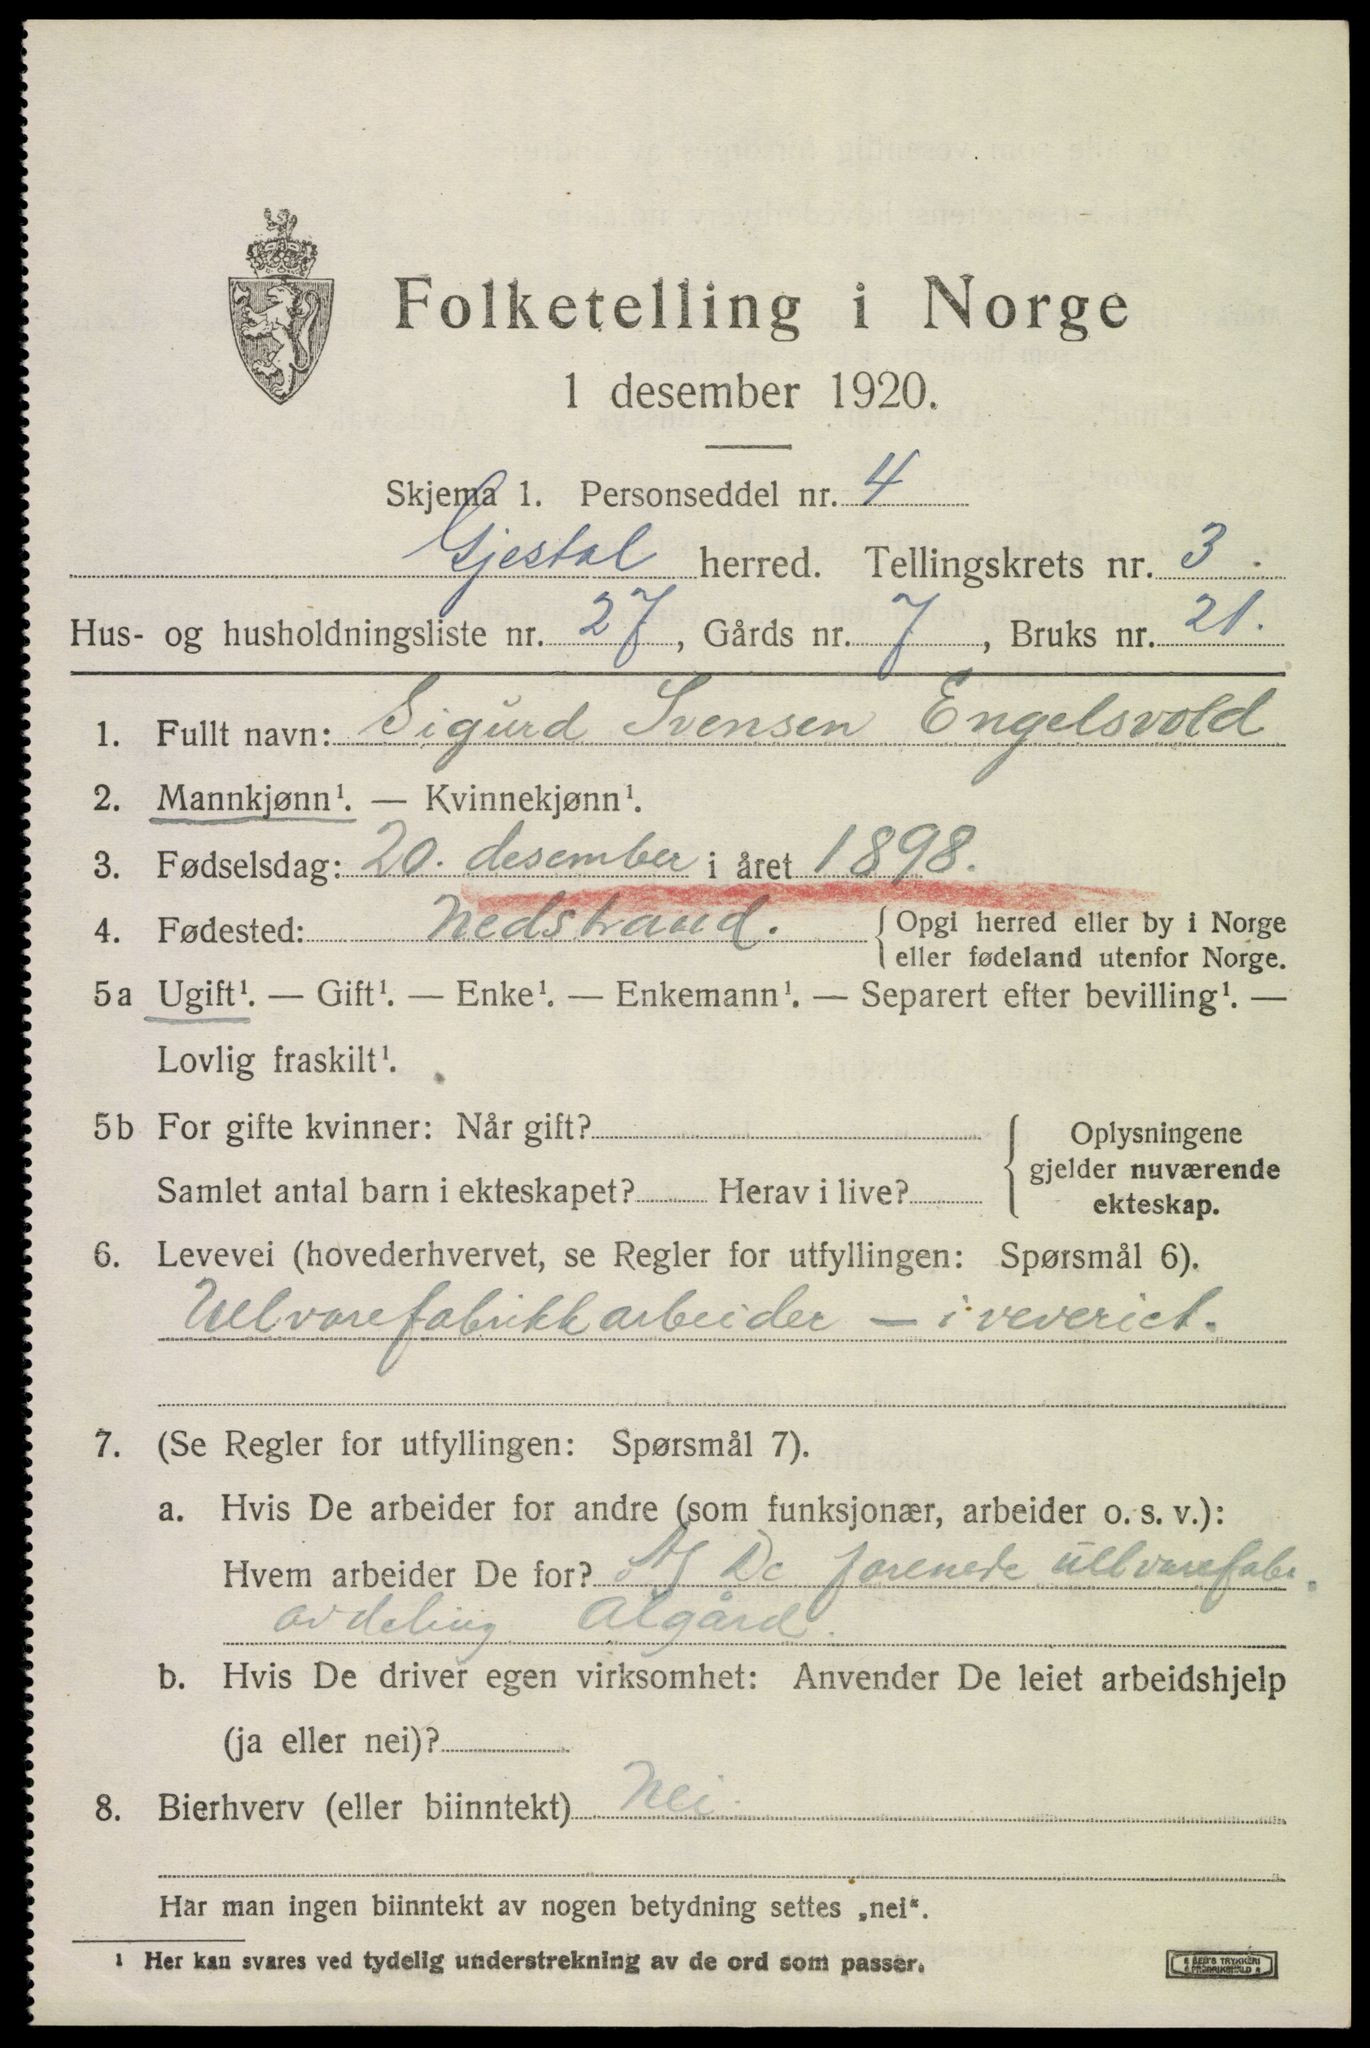 Folketelling i Norge
1 desember 1920.
Skjema 1. Personseddel nr. 4
Gjestal herred. Tellingskrets nr. 3.
Hus- og husholdningsliste nr. 27, Gårds nr. 7, Bruks nr. 21.
1. Fullt navn: Sigurd Svensen Engelsvold
2. Mannkjønn¹. — Kvinnekjønn¹.
3. Fødselsdag: 20. desember i året 1898.
4. Fødested: Nedstrand. { Opgi herred eller by i Norge
eller fødeland utenfor Norge.
5a Ugift¹. — Gift¹. — Enke¹. — Enkemann¹. — Separert efter bevilling¹. —
Lovlig fraskilt¹.
5b For gifte kvinner: Når gift?
Samlet antal barn i ekteskapet? Herav i live?
Oplysningene
gjelder nuværende
ekteskap.
6. Levevei (hovederhvervet, se Regler for utfyllingen: Spørsmål 6).
Ullvarefabrikkarbeider — i veveriet.
7. (Se Regler for utfyllingen: Spørsmål 7).
a. Hvis De arbeider for andre (som funksjonær, arbeider o. s. v.):
Hvem arbeider De for? A/S De forenede ullvarefabr.
avdeling Ålgård.
b. Hvis De driver egen virksomhet: Anvender De leiet arbeidshjelp
(ja eller nei)?
8. Bierhverv (eller biinntekt) Nei.
Har man ingen biinntekt av nogen betydning settes „nei“.
¹ Her kan svares ved tydelig understrekning av de ord som passer.